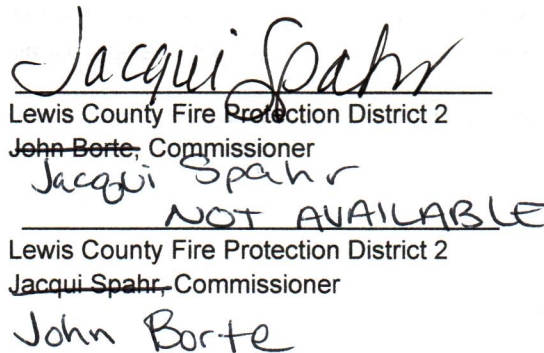 Jacqui Spahr
Lewis County Fire Protection District 2
John Borte, Commissioner
Jacqui Spahr
NOT AVAILABLE
Lewis County Fire Protection District 2
Jacqui Spahr, Commissioner
John Borte